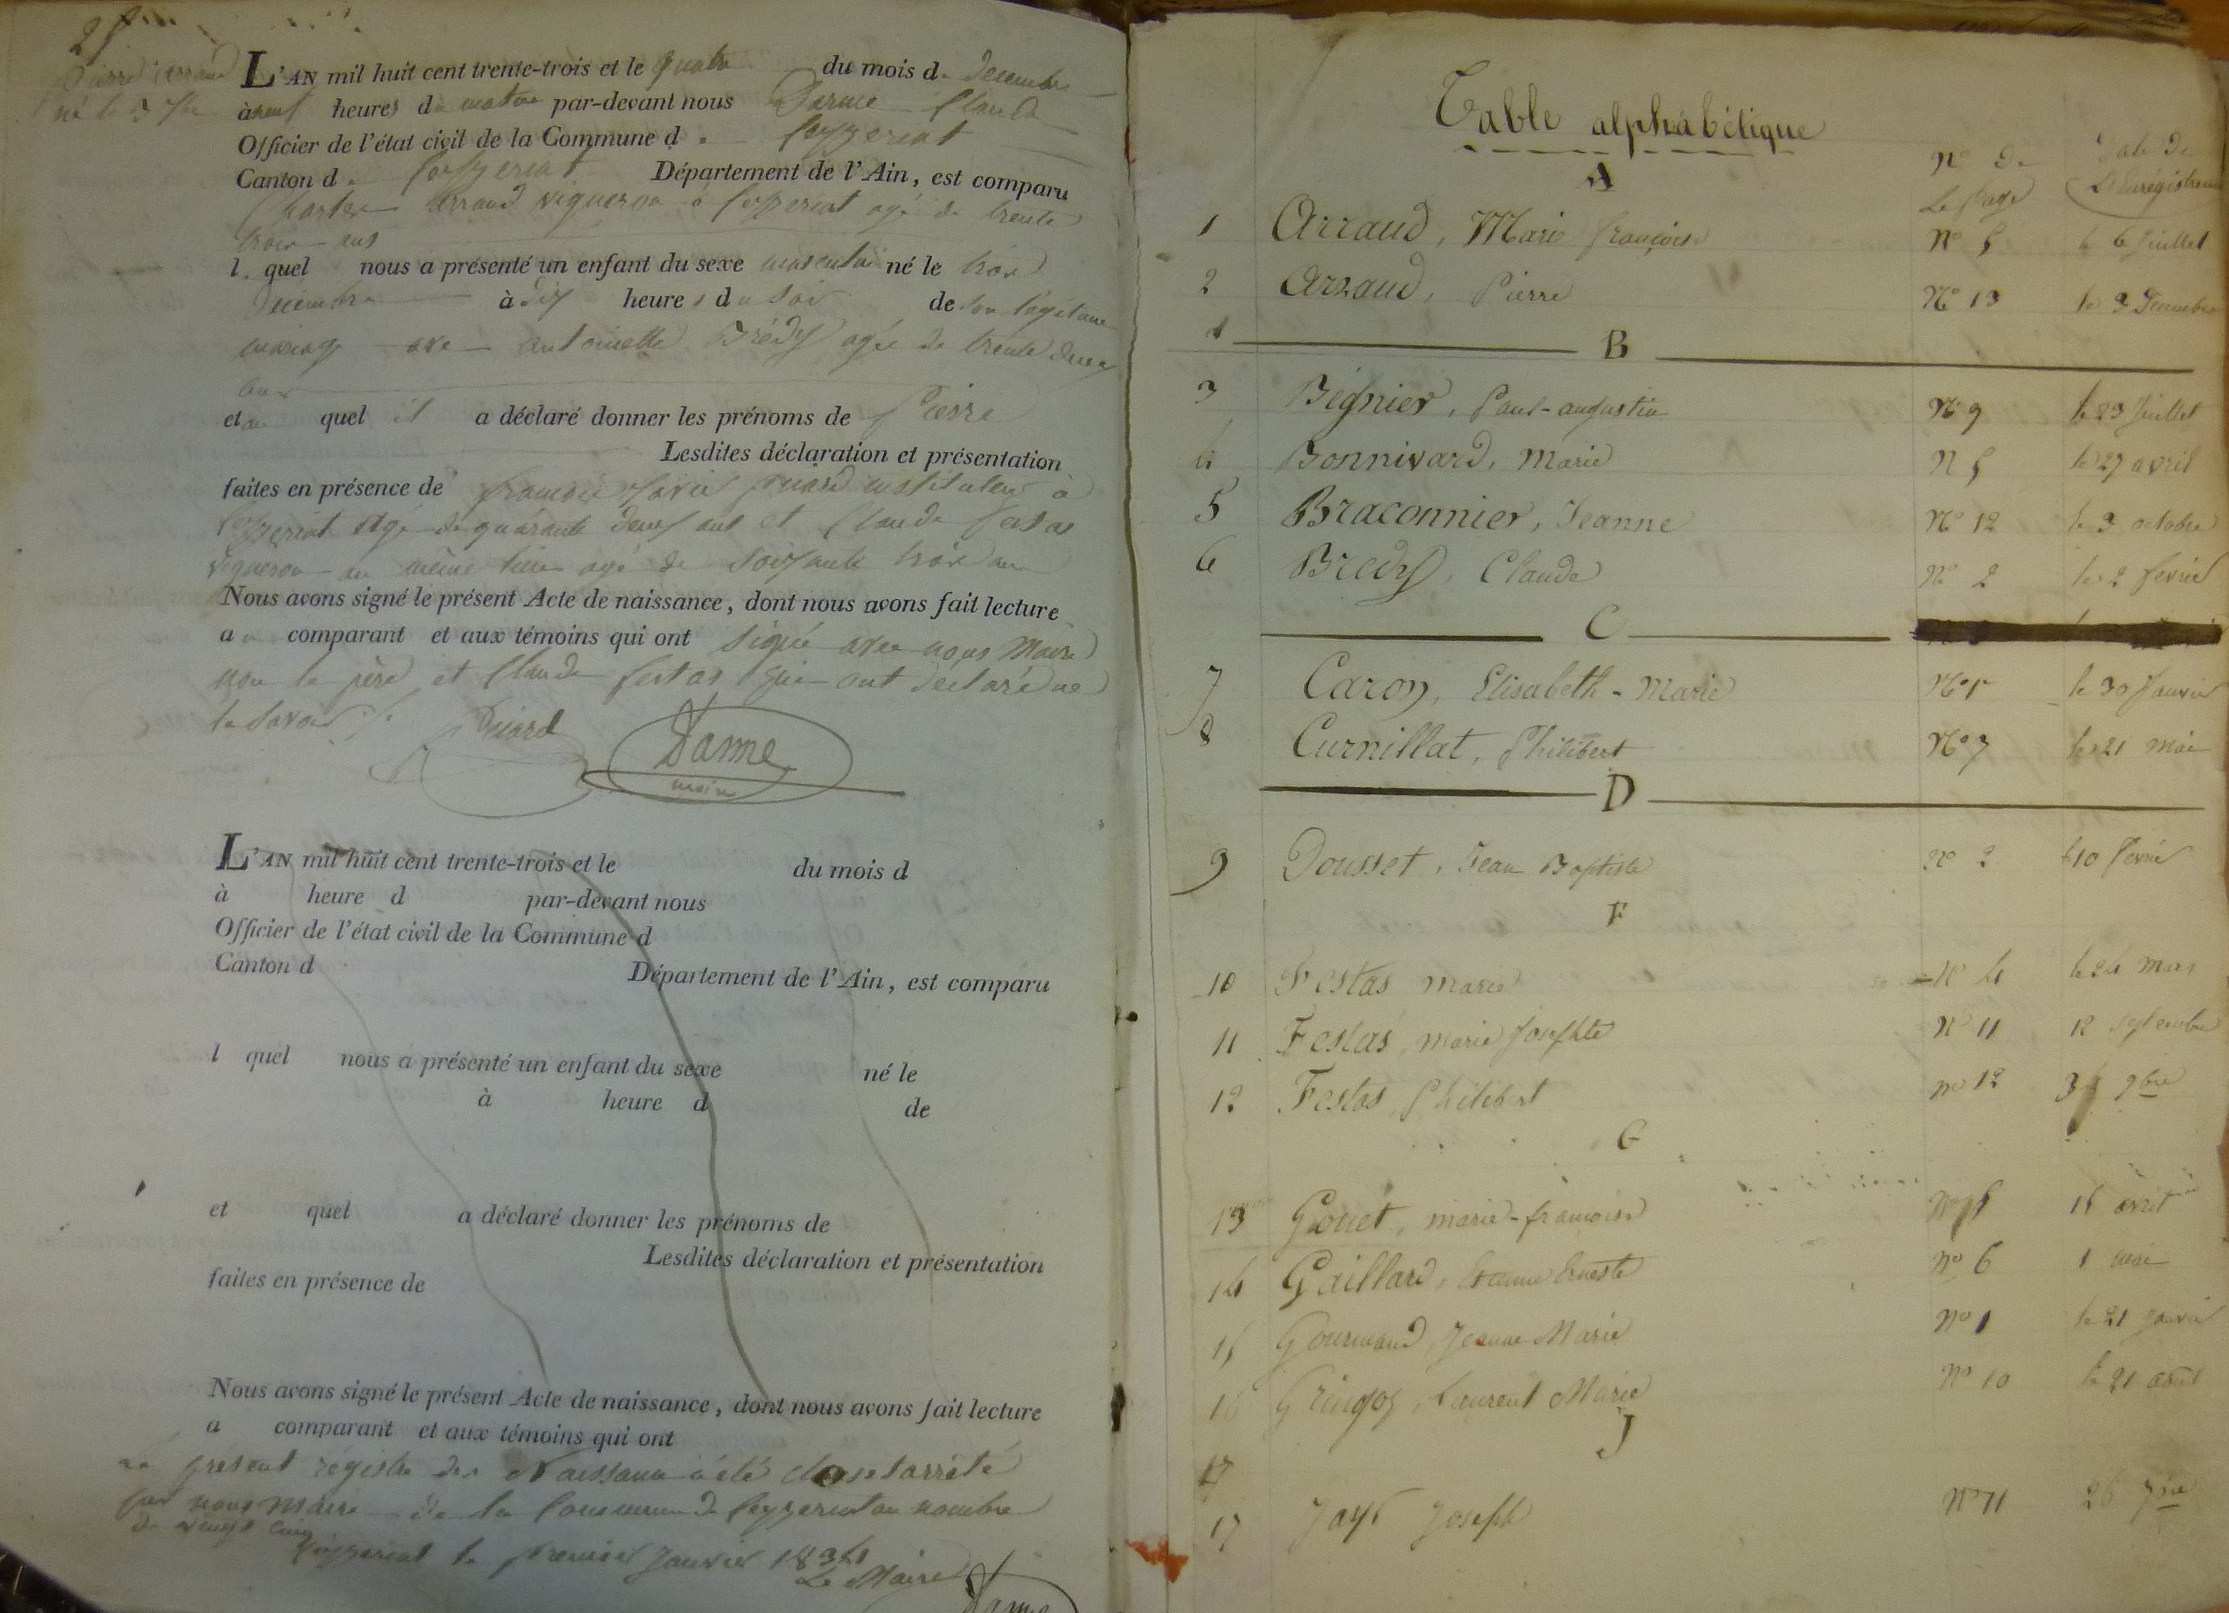 25
Pierre Arraud
né le 3 Xbre
L'AN mil huit cent trente-trois et le quatre du mois de décembre
à neuf heures du matin par-devant nous Darme Claude
Officier de l'état civil de la Commune de Ceyzeriat
Canton de Ceyzeriat Département de l'Ain, est comparu
Arraud vigneron à Ceyzeriat agé de trente
trois ans
lequel nous a présenté un enfant du sexe masculin né le trois
Décembre à dix heures du soir de son légitime
mariage avec antoinette Brédy agée de trente deux
ans
et au quel il a déclaré donner les prénoms de Pierre
Lesdites déclaration et présentation
faites en présence de françois Xavier instituteur à
Ceyzeriat agé de quarante deux ans et Claude festas
vigneron au même lieu agé de soixante trois ans
Nous avons signé le présent Acte de naissance, dont nous avons fait lecture
au comparant et aux témoins qui ont signé avec nous Maire
non le père et Claude festas qui ont déclaré ne
le savoir
Darme
maire
L'AN mil huit cent trente-trois et le du mois d
à heure d par-devant nous
Officier de l'état civil de la Commune d
Canton d Département de l'Ain, est comparu
l quel nous a présenté un enfant du sexe né le
à heure d de
et quel a déclaré donner les prénoms de
Lesdites déclaration et présentation
faites en présence de
Nous avons signé le présent Acte de naissance, dont nous avons fait lecture
a comparant et aux témoins qui ont
Le présent régistre des Naissance a été clos et arrêté
par nous Maire de la Commune de Ceyzeriat au nombre
de vingt cinq
Ceyzeriat le premier Janvier 1834
Le Maire
Darme
Table alphabétique
A
No de
la Page
Date de
L'Enrégistrement
1 Arraud, Marie françoise No 5 le 6 Juillet
2 Arraud, Pierre No 13 le 3 Décembre
B
3 Bégnier, Paul-augustin No 9 le 23 Juillet
4 Bonnivard, Marie N 5 le 27 avril
5 Braconnier, Jeanne No 12 le 3 octobre
6 Bredy, Claude No 2 le 2 fevrier
C
7 Caron, Elisabeth-Marie No 1er le 30 Janvier
8 Curnillat, Philibert No 7 le 21 mai
D
9 Dousset, Jean Baptiste No 2 le 10 fevrier
F
10 Festas marie No 4 le 24 mars
11 Festas, marie Josephte No 11 12 septembre
12 Festas Philibert no 12 9bre
G
13 Gouet, marie-françoise 15 avril
14 Gaillard, Etienne Erneste no 6 1 mai
15 Gourmand Jeanne Marie No 1 le 21 Janvier
16 Gringoz, Laurent Marie No 10 le 21 août
J
17
17 Jayr Joseph No 11 26 7bre